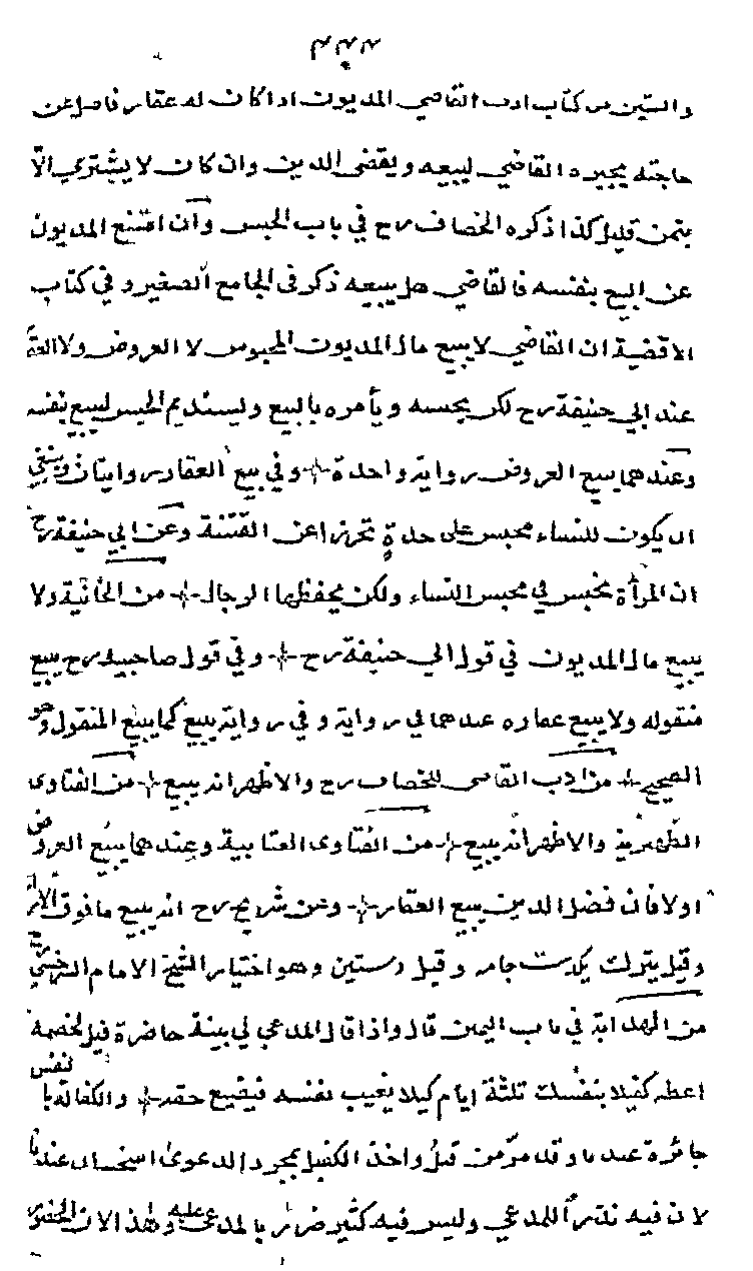 والستين من كتاب ادب القاضي المديون اذا كان له عقار فاضل عن
حاجته يجبره القاضي ليبيعه ويقضي الدين وان كان لا يشتري الّا
بثمن قليل كذا ذكره الخصاف رح في باب الحبس وان امتنع المديون
عن البيع بنفسه فالقاضي هل يبيعه ذكر في الجامع الصغير وفي كتاب
الاقضية ان القاضي لا يبيع مال المديون المحبوس لا العروض ولا العقار
عند ابي حنيفة رح لكن يحبسه ويأمره بالبيع ويستديم الحبس ليبيع بنفسه
وعندهما يبيع العروض رواية واحدة وفي بيع العقار روايتان وينبغي
ان يكون للنساء محبس على حدةٍ تحرزا عن الفتنة وعن ابي حنيفة رح
ان المرأة تحبس في محبس النساء ولكن يحفظها الرجال من الخانية ولا
يبيع مال المديون في قول ابي حنيفة رح وفي قول صاحبيه رح يبيع
منقوله ولا يبيع عقاره عندهما في رواية وفي رواية يبيع كما يبيع المنقول وهو
الصحيح من ادب القاضي للخصاف رح والاظهر انه يبيع من الفتاوى
الظهيرية والاظهر انه يبيع من الفتاوى العتابية وعندهما يبيع العروض
اولا فان فضل الدين يبيع العقار وعن شريح رح انه يبيع ما فوق الازار
وقيل يترك يكدست جامه وقيل دستين وهو اختيار الشيخ الامام السرخسي
من الهداية في باب اليمين قال واذا قال المدعي لي بينة حاضرة قيل لخصمه
اعطه كفيلا بنفسك ثلثة ايام كيلا يغيب نفسه فيضيع حقه والكفالة بالنفس
جائزة عندنا وقد مرّ من قبلُ واخذ الكفيل بمجرد الدعوى استحسان عندنا
لان فيه نظراً للمدعي وليس فيه كثير ضرر بالمدعى عليه وهذا لان الحضور